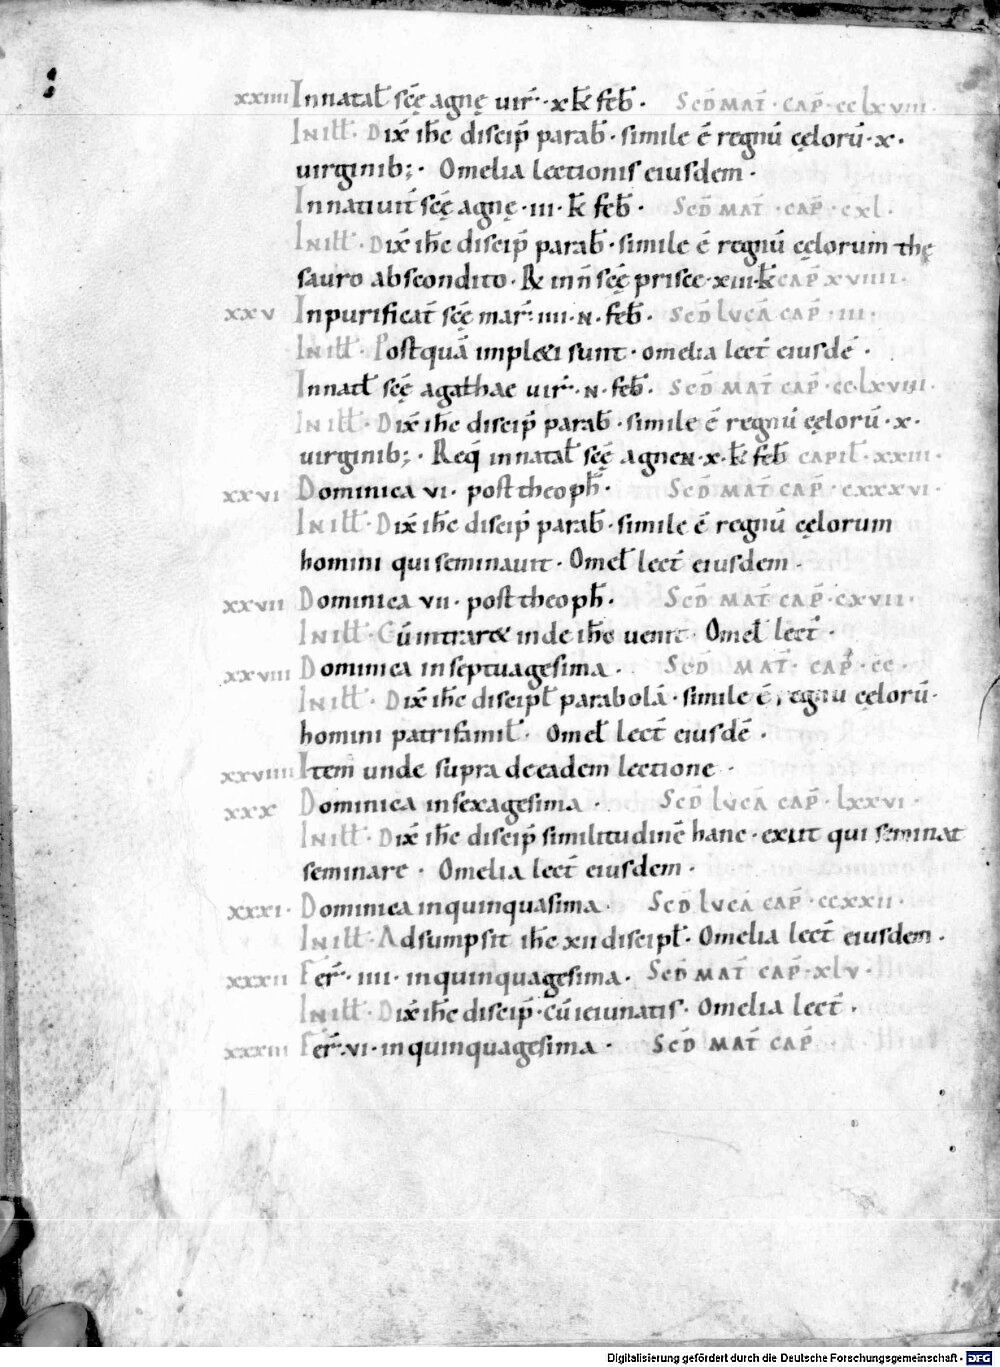 xxiiii In natal̄ sc̄ę agnę uir̄ · x k̄ feb̄ · Scd̄ mat̄ · cap̄ · cclxviii ·
In ill̄ · Dix̄ ih̄c discip̄ parab̄ · simile ē regnū cęlorū · x ·
uirginib; · Omelia lectionis eiusdem ·
In natiuit̄ sc̄ę agnę · iii · k̄ feb̄ · Scd̄ mat̄ · cap̄ · cxl ·
In ill̄ · Dix̄ ih̄c discip̄ parab̄ · simile ē regnū cęlorum the
sauro abscondito · & in n̄ sc̄ę prisce · xiii · k̄ cap̄ xviiii ·
xxv In purificat̄ sc̄ę mar̄ · iiii · n · feb̄ · Scd̄ lucā cap̄ · iii ·
In ill̄ · Postquā impl&i sunt · omelia lect̄ eiusdē ·
In natl̄ sc̄ę agathae uir̄ · n · feb̄ · Scd̄ mat̄ cap̄ · cclxviii ·
In ill̄ · Dix̄ ih̄c discip̄ parab̄ · simile ē regnū cęlorū · x ·
uirginib; · Req̄ in natal̄ sc̄ę agnen · x · k̄ feb̄ capil̄ · xxiii ·
xxvi Dominica vi · post theoph̄ · Scd̄ mat̄ cap̄ · cxxxvi ·
In ill̄ · Dix̄ ih̄c discip̄ parab̄ · simile ē regnū cęlorum
homini qui seminauit · Omel̄ lect̄ eiusdem ·
xxvii Dominica vii · post theoph̄ · Scd̄ mat̄ cap̄ · cxvii ·
In ill̄ · Cū intrar& inde ih̄c uenit · Omel̄ lect̄ ·
xxviii Dominica in septuagesima · Scd̄ mat̄ · cap̄ · cc ·
In ill̄ · Dix̄ ih̄c discipl̄ parabolā · simile ē regnū cęlorū ·
homini patrifamil̄ · Omel̄ lect̄ eiusdē ·
xxviiii Item unde supra de eadem lectione ·
xxx Dominica in sexagesima · Scd̄ lucā cap̄ · lxxvi ·
In ill̄ · Dix̄ ih̄c discip̄ similitudinē hanc · exiit qui seminat
seminare · Omelia lect̄ eiusdem ·
xxxi · Dominica in quinquasima · Scd̄ lucā cap̄ · ccxxii ·
In ill̄ · Adsumpsit ih̄c xii discipl̄ · Omelia lect̄ eiusdem ·
xxxii Fer̄ · iiii · in quinquagesima · Scd̄ mat̄ cap̄ · xlv ·
In ill̄ · Dix̄ ih̄c discip̄ · cū ieiunatis · Omelia lect̄ ·
xxxiii Fer̄ · vi · in quinquagesima · Scd̄ mat̄ cap̄
Digitalisierung gefördert durch die Deutsche Forschungsgemeinschaft - DFG